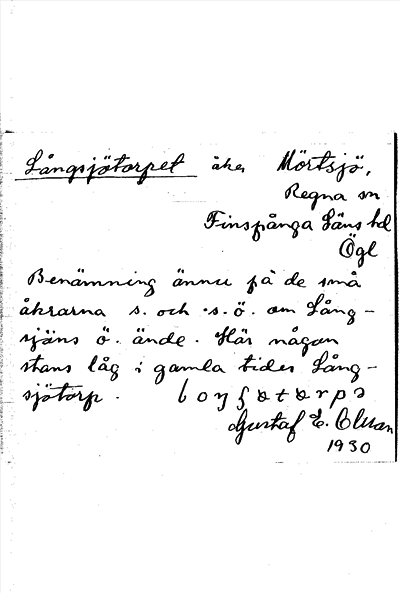 Långsjötorpet åker Mörtsjö,
Regna sn
Finspånga Läns hd
Ögl
Benämning ännu på de små
åkrarna s. och s.ö. om Lång-
sjäns ö. ände. Här någon
stans låg i gamla tider Lång-
sjötorp.
Gustaf E.
1930